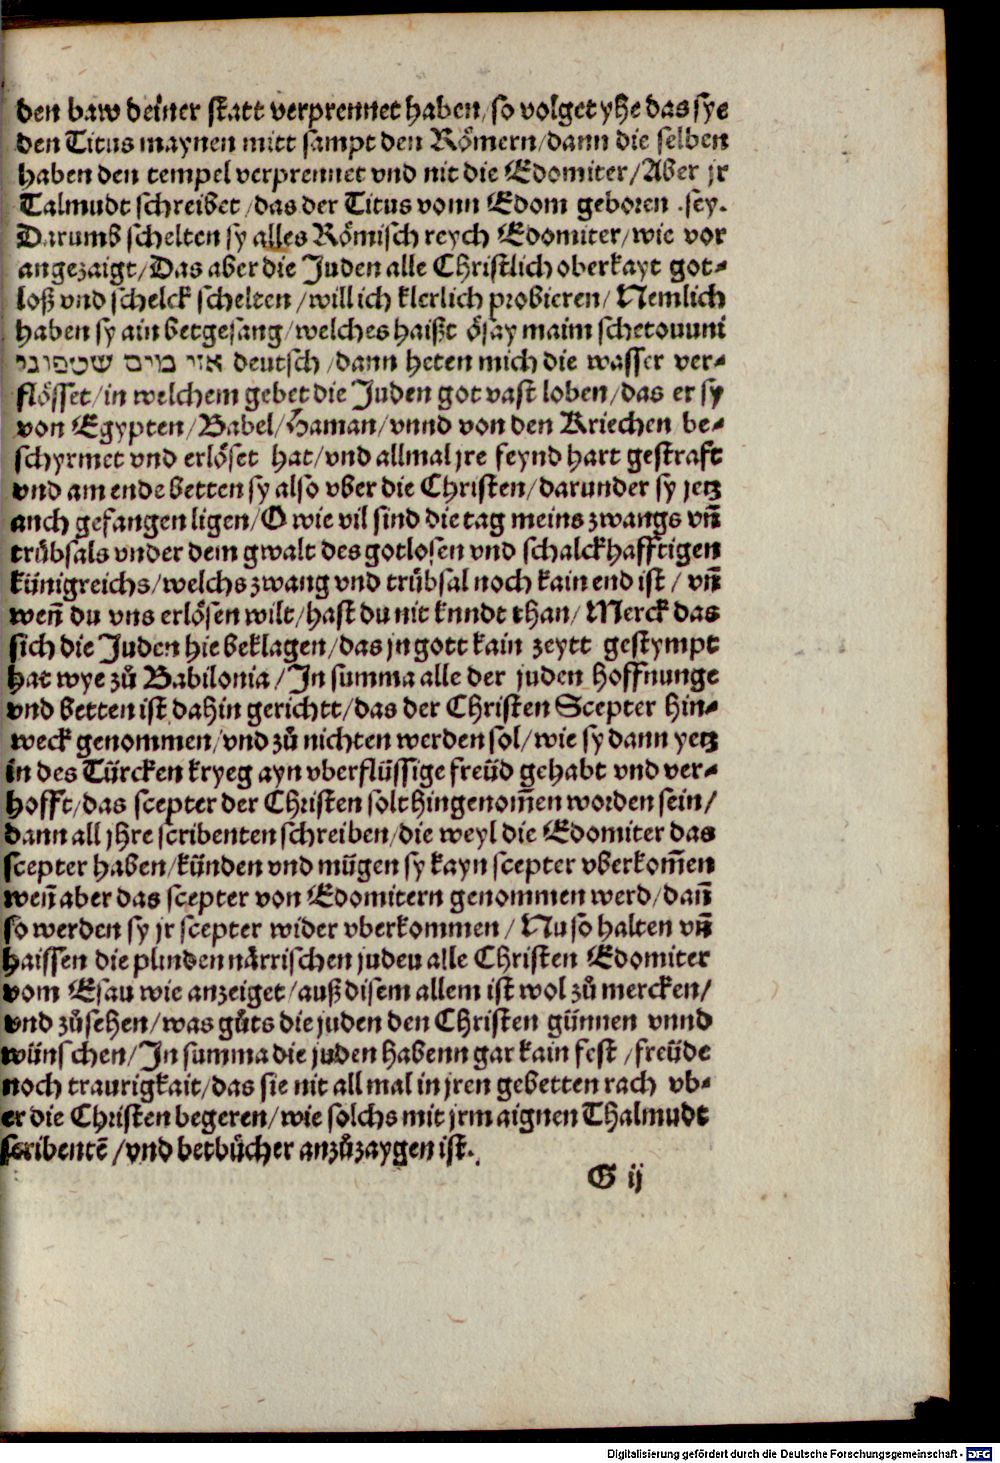 den baw deiner statt verprennet haben/so volget yhe das sye
den Titus maynen mitt sampt den Römern/dann die selben
haben den tempel verprennet vnd nit die Edomiter/Aber jr
Talmudt schreibet/das der Titus vonn Edom geboren .sey.
Darumb schelten sy alles Römisch reych Edomiter/wie vor
angezaigt/Das aber die Juden alle Christlich oberkayt got⸗
loß vnd schelck schelten/will ich klerlich probieren/Nemlich
haben sy ain betgesang/welches haißt ösay maim schetovuni
אזי מים שטפוני deutsch/dann heten mich die wasser ver⸗
flösset/in welchem gebet die Juden got vast loben/das er sy
von Egypten/Babel/Haman/vnnd von den Kriechen be⸗
schyrmet vnd erlöset hat/vnd allmal jre feynd hart gestraft
vnd am ende betten sy also vber die Christen/darunder sy jetz
auch gefangen ligen/O wie vil sind die tag meins zwangs vn̄
trübsals vnder dem gwalt des gotlosen vnd schalckhafftigen
künigreichs/welchs zwang vnd trübsal noch kain end ist/vn̄
wen̄ du vns erlösen wilt/hast du nit kundt than/Merck das
sich die Juden hie beklagen/das jn gott kain zeytt gestympt
hat wye zů Babilonia/In summa alle der juden hoffnunge
vnd betten ist dahin gerichtt/das der Christen Scepter hin⸗
weck genommen/vnd zů nichten werden sol/wie sy dann yetz
in des Türcken kryeg ayn vberflüssige freüd gehabt vnd ver⸗
hofft/das scepter der Christen solt hingenom̄en worden sein/
dann all jhre scribenten schreiben/die weyl die Edomiter das
scepter haben/künden vnd mügen sy kayn scepter vberkom̄en
wen̄ aber das scepter von Edomitern genommen werd/dan̄
so werden sy jr scepter wider vberkommen/Nu so halten vn̄
haissen die plinden närrischen juden alle Christen Edomiter
vom Esau wie anzeiget/auß disem allem ist wol zů mercken/
vnd zů sehen/was gůts die juden den Christen günnen vnnd
wünschen/In summa die juden habenn gar kain fest/freüde
noch traurigkait/das sie nit all mal in jren gebetten rach vb⸗
er die Christen begeren/wie solchs mit jrm aignen Thalmudt
scribentē/vnd betbücher anzůzaygen ist.
G ij
Digitalisierung gefördert durch die Deutsche Forschungsgemeinschaft - DFG